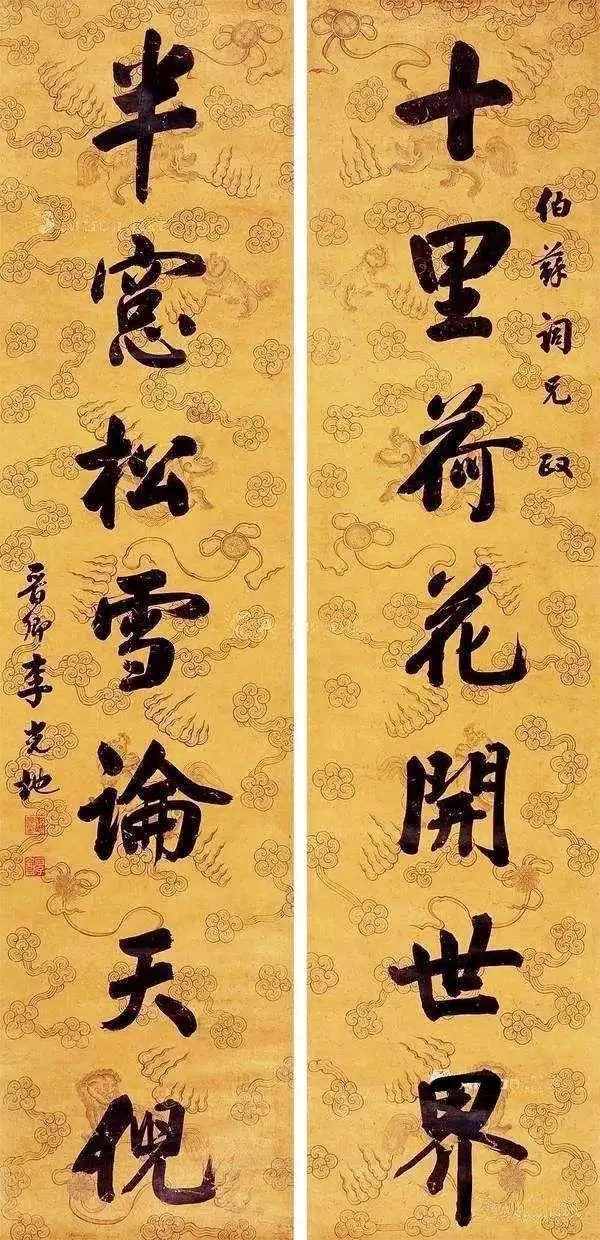 十里荷花開世界
伯蓀詞兄 政
半窻松雪論天倪
晋卿李光地